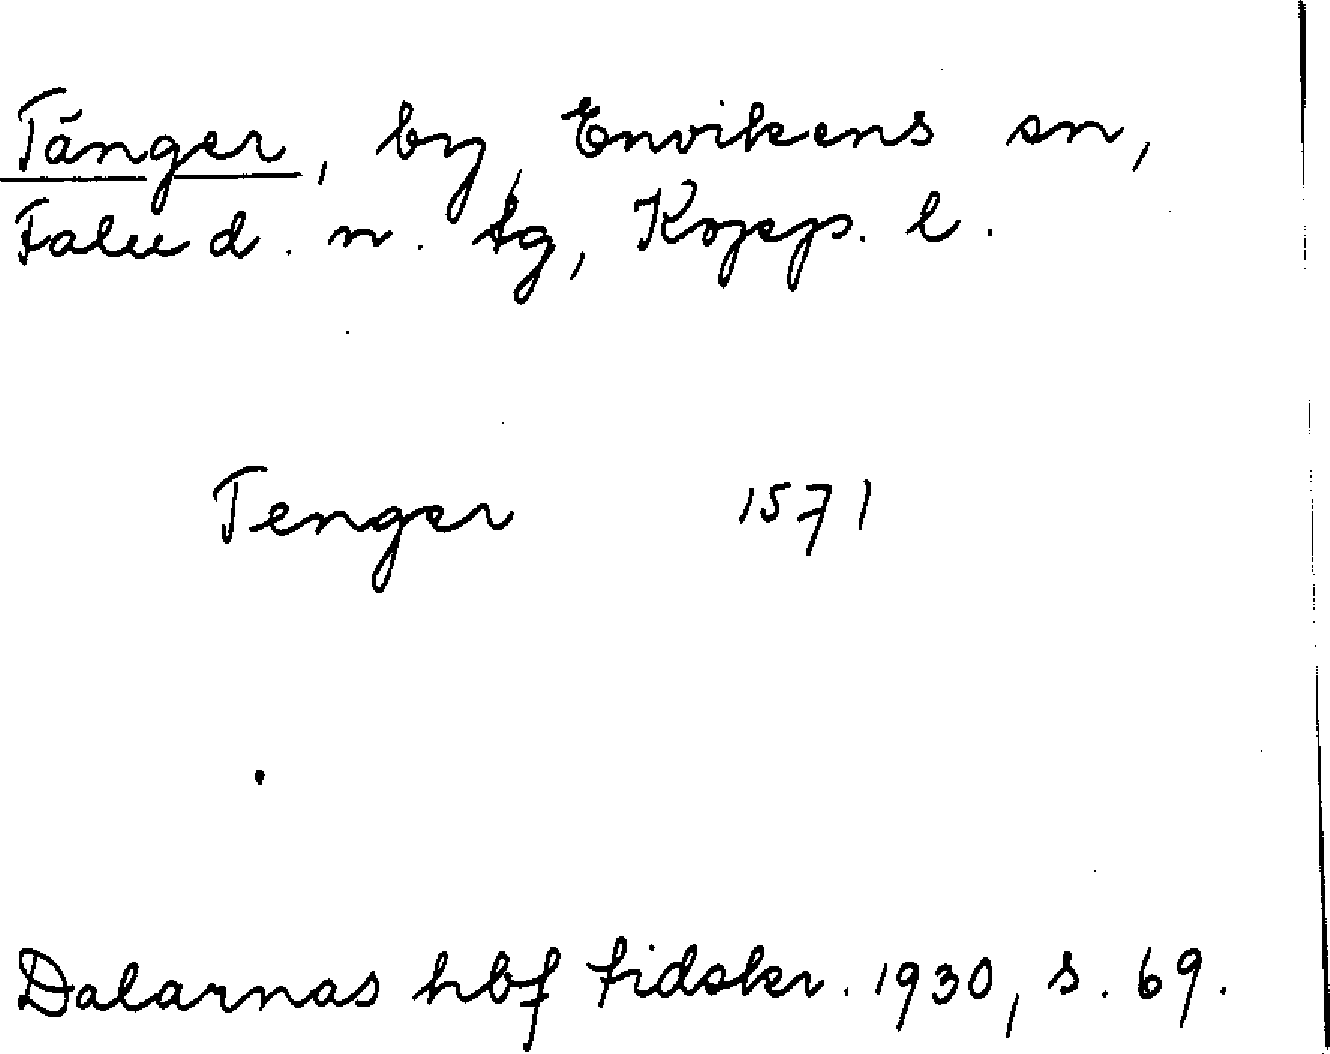 Tänger, by, Envikens sn,
Falu d. n. tg, Kopp. l.
Tenger 1571
Dalarnas hbf tidskr. 1930, s. 69.